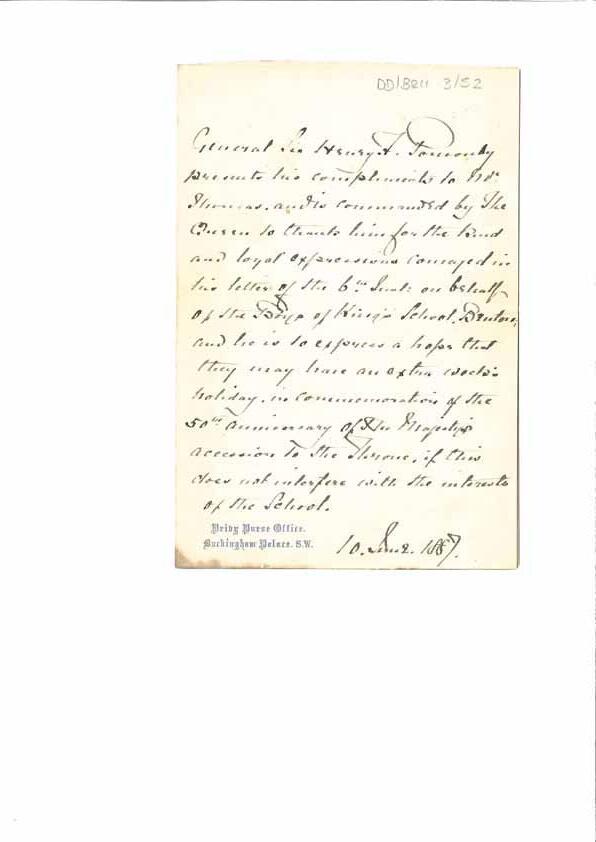 DD/BRU 3/52
General Sir Henry F. Ponsonby
presents his compliments to Mr.
Thomas, and is commanded by The
Queen to thank him for the kind
and loyal expressions conveyed in
his letter of the 6th Inst: on behalf
of the Boys of King's School, Bruton,
and he is to express a hope that
they may have an extra week's
holiday, in commemoration of the
50th anniversary of Her Majesty's
accession to the Throne, if this
does not interfere with the interests
of the School.
Privy Purse Office.
Buckingham Palace. S.W.
10. June. 1887.